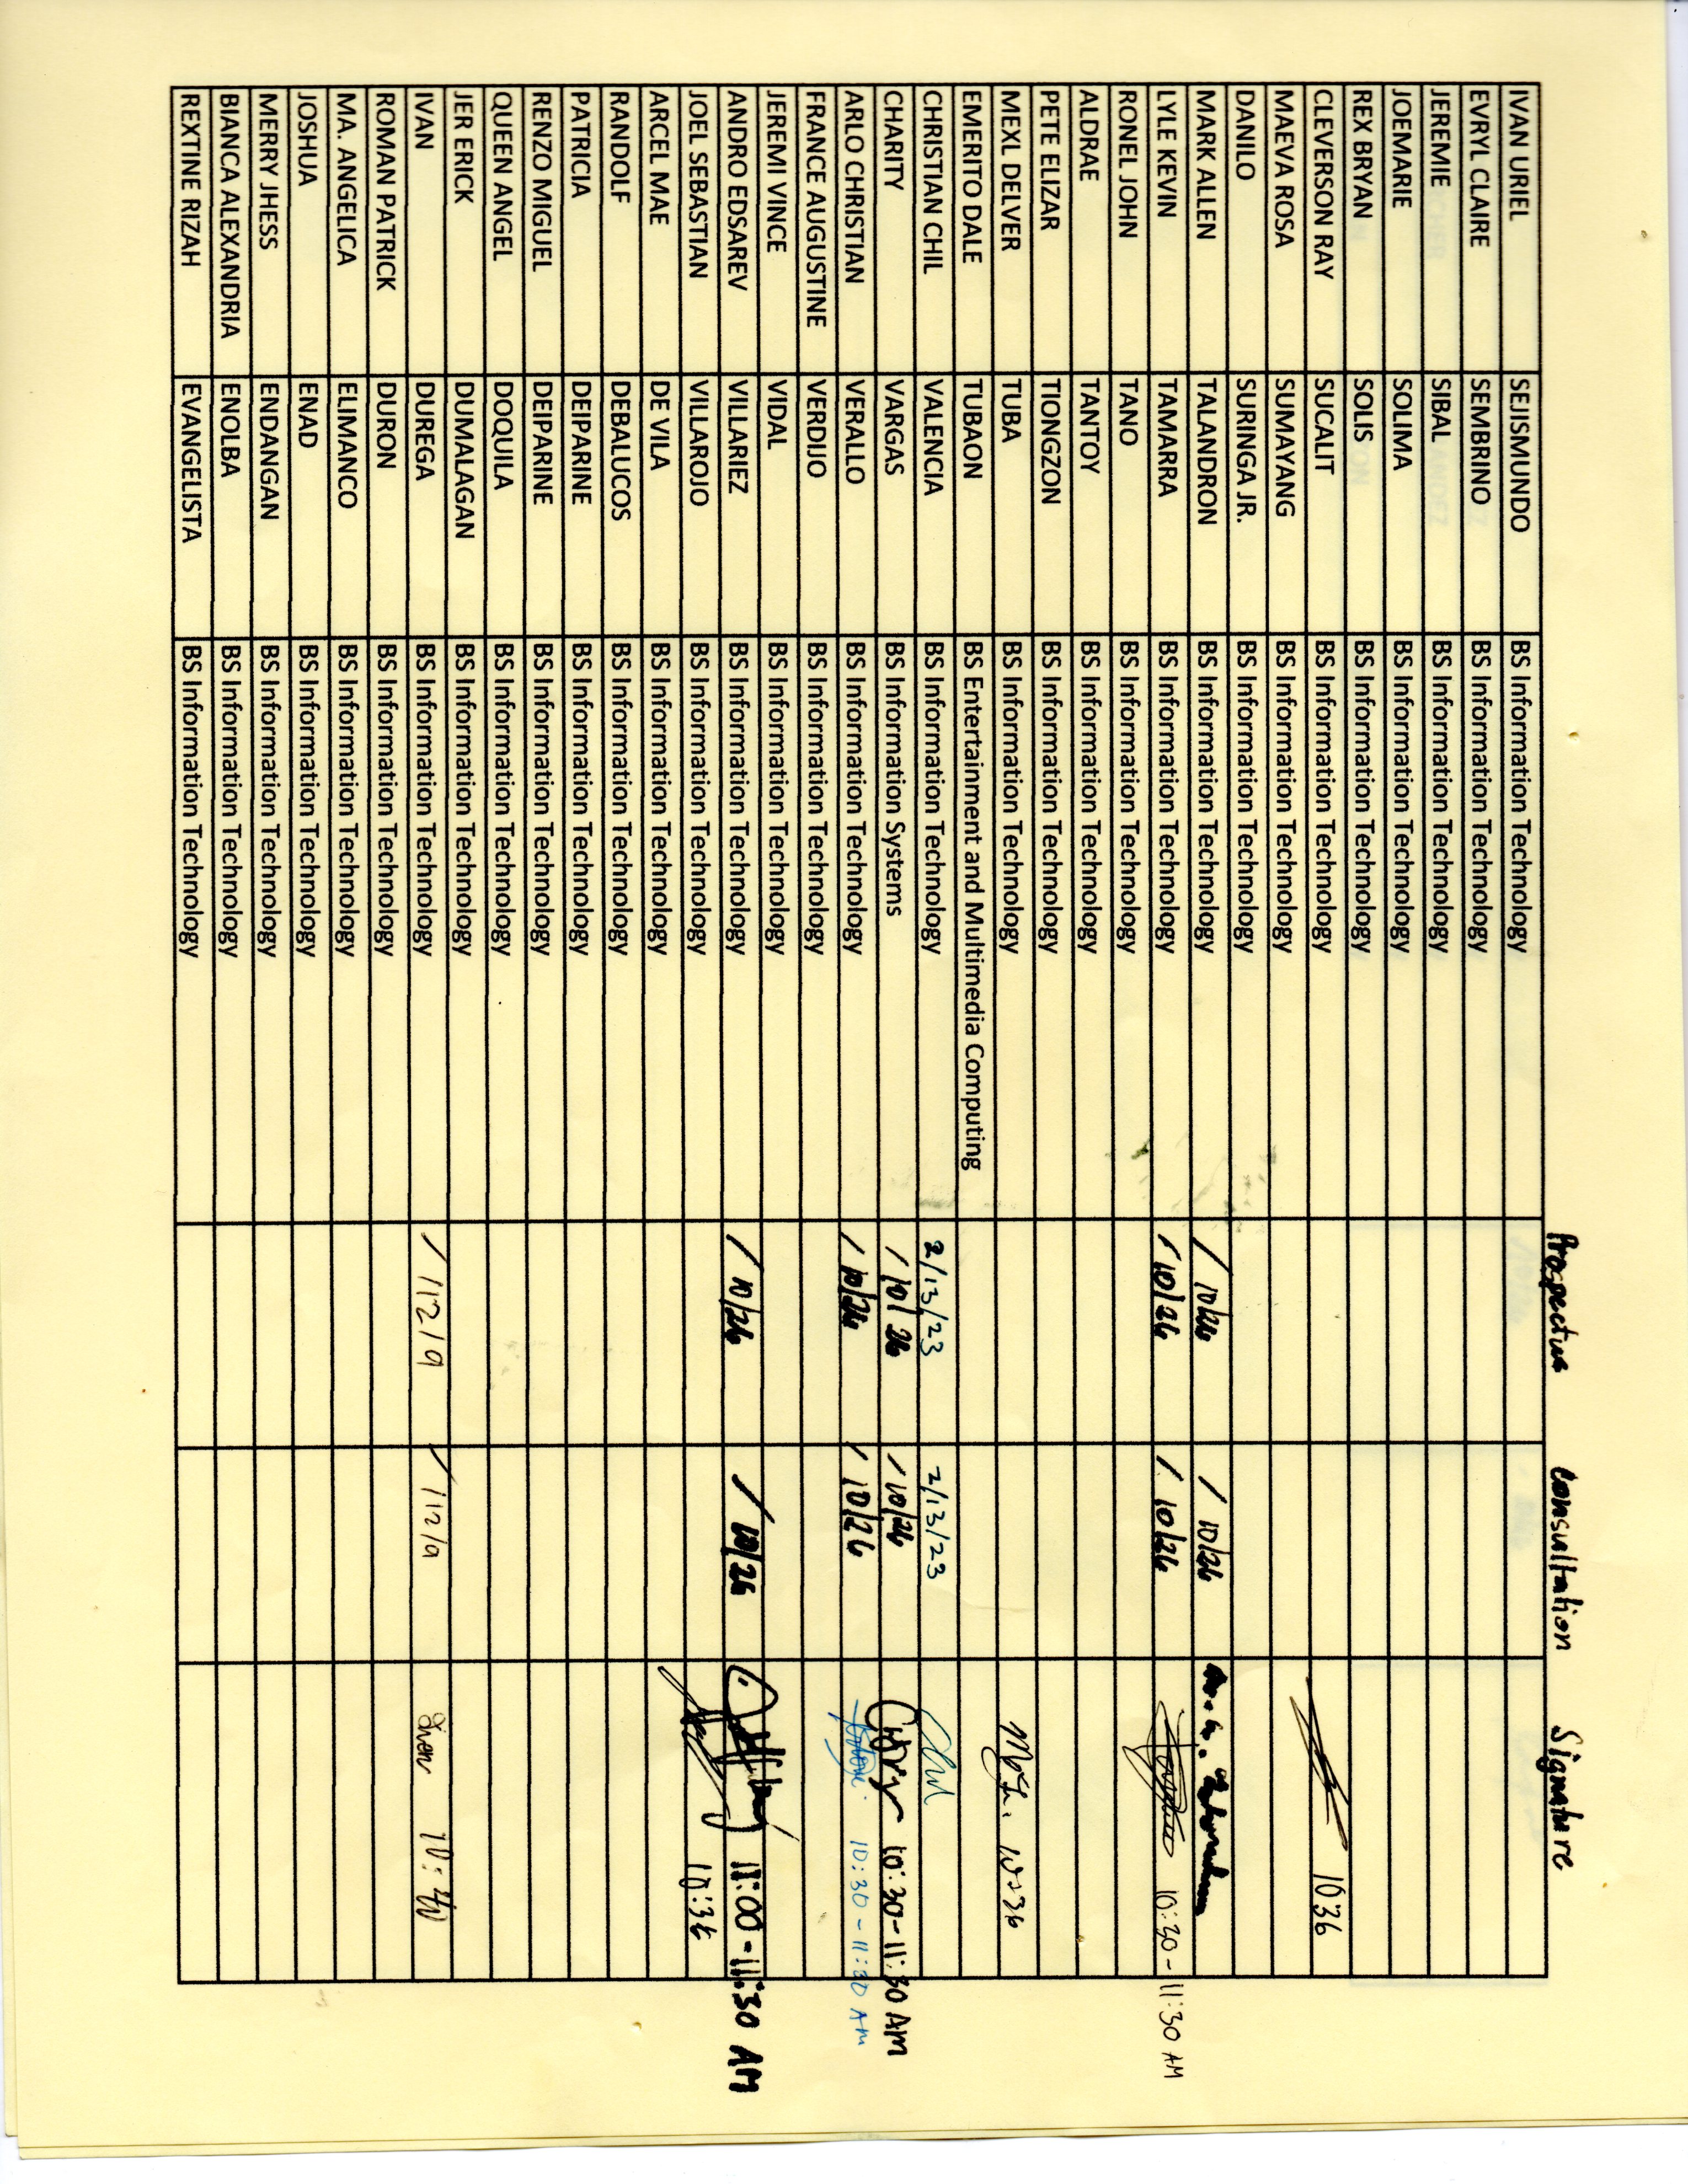 Prospectus Consultation Signature
IVAN URIEL SEJISMUNDO BS Information Technology
EVRYL CLAIRE SEMBRINO BS Information Technology
JEREMIE SIBAL BS Information Technology
JOEMARIE SOLIMA BS Information Technology
REX BRYAN SOLIS BS Information Technology
CLEVERSON RAY SUCALIT BS Information Technology 10:36
MAEVA ROSA SUMAYANG BS Information Technology
DANILO SURINGA JR. BS Information Technology
MARK ALLEN TALANDRON BS Information Technology / 10/26 / 10/26
LYLE KEVIN TAMARRA BS Information Technology / 10/26 / 10/26 10:30 - 11:30 AM
RONEL JOHN TANO BS Information Technology
ALDRAE TANTOY BS Information Technology
PETE ELIZAR TIONGZON BS Information Technology
MEXL DELVER TUBA BS Information Technology 10:36
EMERITO DALE TUBAON BS Entertainment and Multimedia Computing
CHRISTIAN CHIL VALENCIA BS Information Technology 2/13/23 2/13/23
CHARITY VARGAS BS Information Systems / 10/26 / 10/26 10:30-11:30 AM
ARLO CHRISTIAN VERALLO BS Information Technology / 10/26 / 10/26 10:30 - 11:30 AM
FRANCE AUGUSTINE VERDIJO BS Information Technology
JEREMI VINCE VIDAL BS Information Technology
ANDRO EDSAREV VILLARIEZ BS Information Technology / 10/26 / 10/26 11:00-11:30 AM
JOEL SEBASTIAN VILLAROJO BS Information Technology 10:36
ARCEL MAE DE VILA BS Information Technology
RANDOLF DEBALUCOS BS Information Technology
PATRICIA DEIPARINE BS Information Technology
RENZO MIGUEL DEIPARINE BS Information Technology
QUEEN ANGEL DOQUILA BS Information Technology
JER ERICK DUMALAGAN BS Information Technology
IVAN DUREGA BS Information Technology / 112/9 / 112/9 10:40
ROMAN PATRICK DURON BS Information Technology
MA. ANGELICA ELIMANCO BS Information Technology
JOSHUA ENAD BS Information Technology
MERRY JHESS ENDANGAN BS Information Technology
BIANCA ALEXANDRIA ENOLBA BS Information Technology
REXTINE RIZAH EVANGELISTA BS Information Technology